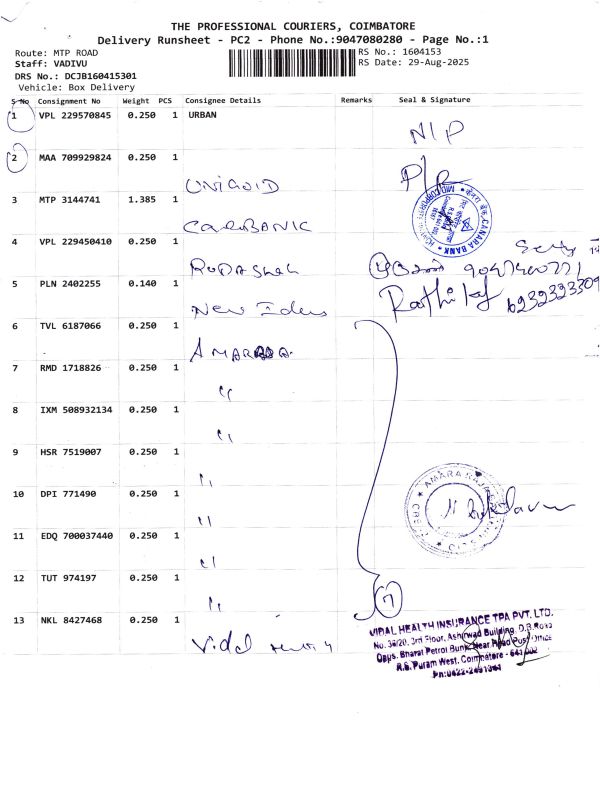 THE PROFESSIONAL COURIERS, COIMBATORE
Delivery Runsheet - PC2 - Phone No.:9047080280 - Page No.:1
Route: MTP ROAD
RS No.: 1604153
Staff: VADIVU
RS Date: 29-Aug-2025
DRS No.: DCJB160415301
Vehicle: Box Delivery
S No Consignment No Weight PCS Consignee Details Remarks Seal & Signature
1 VPL 229570845 0.250 1 URBAN
N/P
2 MAA 709929824 0.250 1
UNIGOID
3 MTP 3144741 1.385 1
CANARA BANK
4 VPL 229450410 0.250 1
9047400771
5 PLN 2402255 0.140 1
New Ideas
Rathi
6 TVL 6187066 0.250 1
7 RMD 1718826 0.250 1
"
8 IXM 508932134 0.250 1
"
9 HSR 7519007 0.250 1
"
10 DPI 771490 0.250 1
"
AMARA RAJA
11 EDQ 700037440 0.250 1
"
12 TUT 974197 0.250 1
"
7
13 NKL 8427468 0.250 1
Vidal
VIDAL HEALTH INSURANCE TPA PVT. LTD.
No. 39/20, 3rd Floor, Ashirwad Building, D.B.Road
Opps. Bharat Petrol Bunk, Near Head Post Office
R.S. Puram West, Coimbatore - 641 002
Ph:0422-2491041